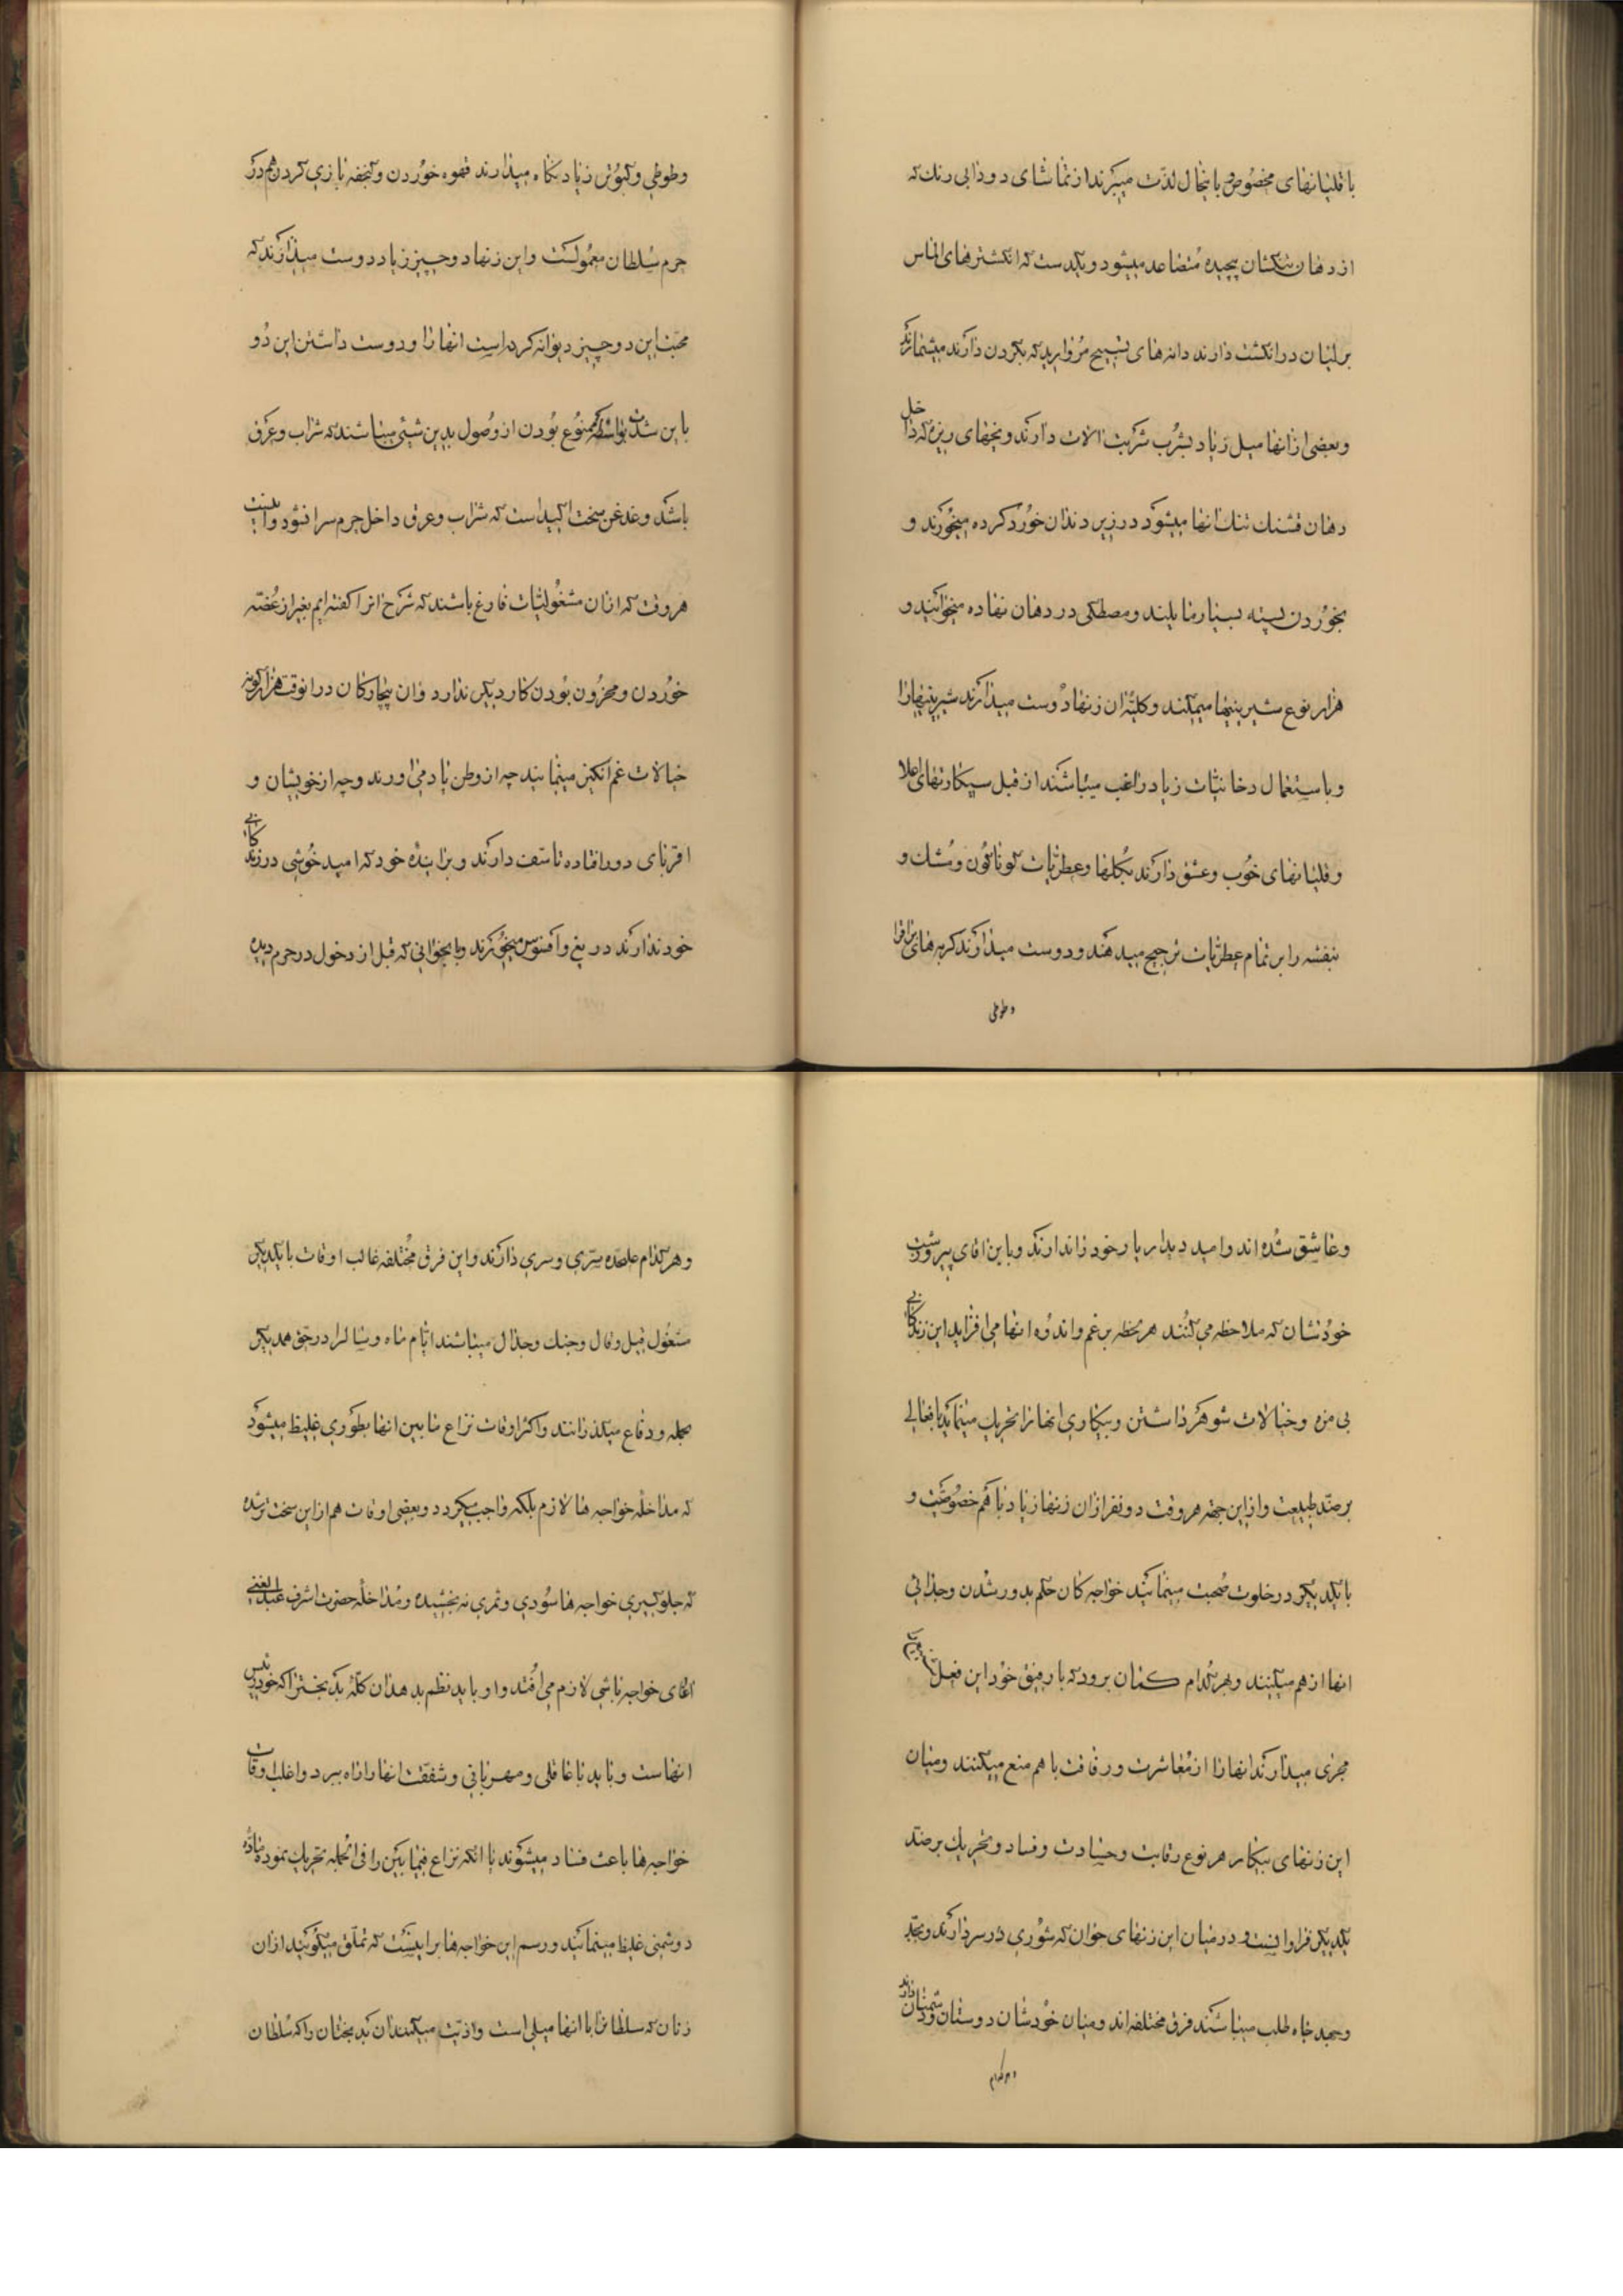 با قلیانهای مخصوص باینحال لذت میبرند از تماشای دودابی رنك که
از دهان تنکشان پیچیده متصاعد میشود و بیکدست که انکشترهای الماس
برلیان در انکشت دارند دانه های تسبیح مروارید که بکردن دارند میشمارند
و بعضی از انها میل زیاد بشرب شربت الات دارند و یخهای ریزه که داخل
دهان قشنك تنك انها میشود در زیر دندان خورد کرده میخورند و
بخوردن پسته بسیار مایلند و مصطکی در دهان نهاده میخوابند و
هزار نوع شیرینیها میمکند و کلیّة ان زنها دوست میدارند شیرینیها را
و باستعمال دخانیات زیاد راغب میباشند از قبیل سیکارتهای اعلا
و قلیانهای خوب و عشق دارند بکلها و عطریات کوناکون و مشك و
بنفشه را بر تمام عطریات ترجیح میدهند و دوست میدارند کربه های براق را
و طوطی
و طوطی و کبوتر زیاد نکاه میدارند قهوه خوردن و کنجفه بازی کردن هم در
حرم سلطان معمولست و این زنها دو چیز زیاد دوست میدارند که
محبت این دو چیز دیوانه کرده است انها را و دوست داشتن این دو
باین شدت بواسطه ممنوع بودن از وصول بدین شیئی میباشند که شراب و عرق
باشد و غدغن سخت اکید است که شراب و عرق داخل حرم سرا نشود و اینست
هر وقت که از ان مشغولیات فارغ باشند که شرح انرا کفته ایم بغیر از غصّه
خوردن و محزون بودن کار دیکر ندارد و ان بیچارکان در انوقت هزار کونه
خیالات غم انکیز مینمایند چه از وطن یاد می اورند و چه از خویشان و
اقربای دور افتاده تاسّف دارند و بر اینده خود که امید خوشی در زندکانی
خود ندارند دریغ و افسوس میخورند و با بجوانی که قبل از دخول در حرم دیده
و عاشق شده اند و امید دیدار یار خود را ندارند و با این اقای پیر زشت
خودشان که ملاحظه می کنند هر لحظه بر غم و اندوه انها می افزاید این زندکانی
بی مزه و خیالات شوهر داشتن و بیکاری انها را تحریك مینماید بافعالی
بر ضدّ طبیعت و از این جهة هر وقت دو نفر از ان زنها زیاد با هم خصوصیّت و
با یکدیکر در خلوت صحبت مینمایند خواجه کان حکم بدور شدن و جدائی
انها از هم میکنند و بهر کدام کمان برود که با رفیق خود این فعل را
مجری میدارند انها را از معاشرت و رفاقت با هم منع میکنند و میان
این زنهای بیکار هر نوع رقابت و حسادت و فساد و تحریك بر ضدّ
یکدیکر فراوانست و در میان این زنهای جوان که شوری در سر دارند و بجدّ
و جهد جاه طلب میباشند فرق مختلفه اند و میان خودشان دوستان و دشمنان دارند
و هر کدام
و هر کدام علیحده سرّی و سری دارند و این فرق مختلفه غالب اوقات با یکدیکر
مشغول قیل و قال و جنك و جدال میباشند ایّام ماه و سال را در حق همدیکر
بحمله و دفاع میکذرانند و اکثر اوقات نزاع ما بین انها بطوری غلیظ میشود
که مداخلهٔ خواجه ها لازم بلکه واجب میکردد و بعضی اوقات هم از این سخت تر شده
که جلوکیری خواجه ها سودی و ثمری نه بخشیده و مداخلهٔ حضرت اشرف عبدالغنی
اغای خواجه باشی لازم می افتد و او باید نظم بدهد ان کلّهٔ بدبخت را که خود رئیس
انهاست و باید با عاقلی و مهربانی و شفقت انها را راه ببرد و اغلب اوقات
خواجه ها باعث فساد میشوند با انکه نزاع فیمابین را فی الجمله تحریك نموده مادّه
دوشمنی غلیظ مینمایند و رسم این خواجه ها بر اینست که تملّق میکویند از ان
زنان که سلطانرا با انها میلی است و اذیّت میکنند ان بدبختان را که سلطان